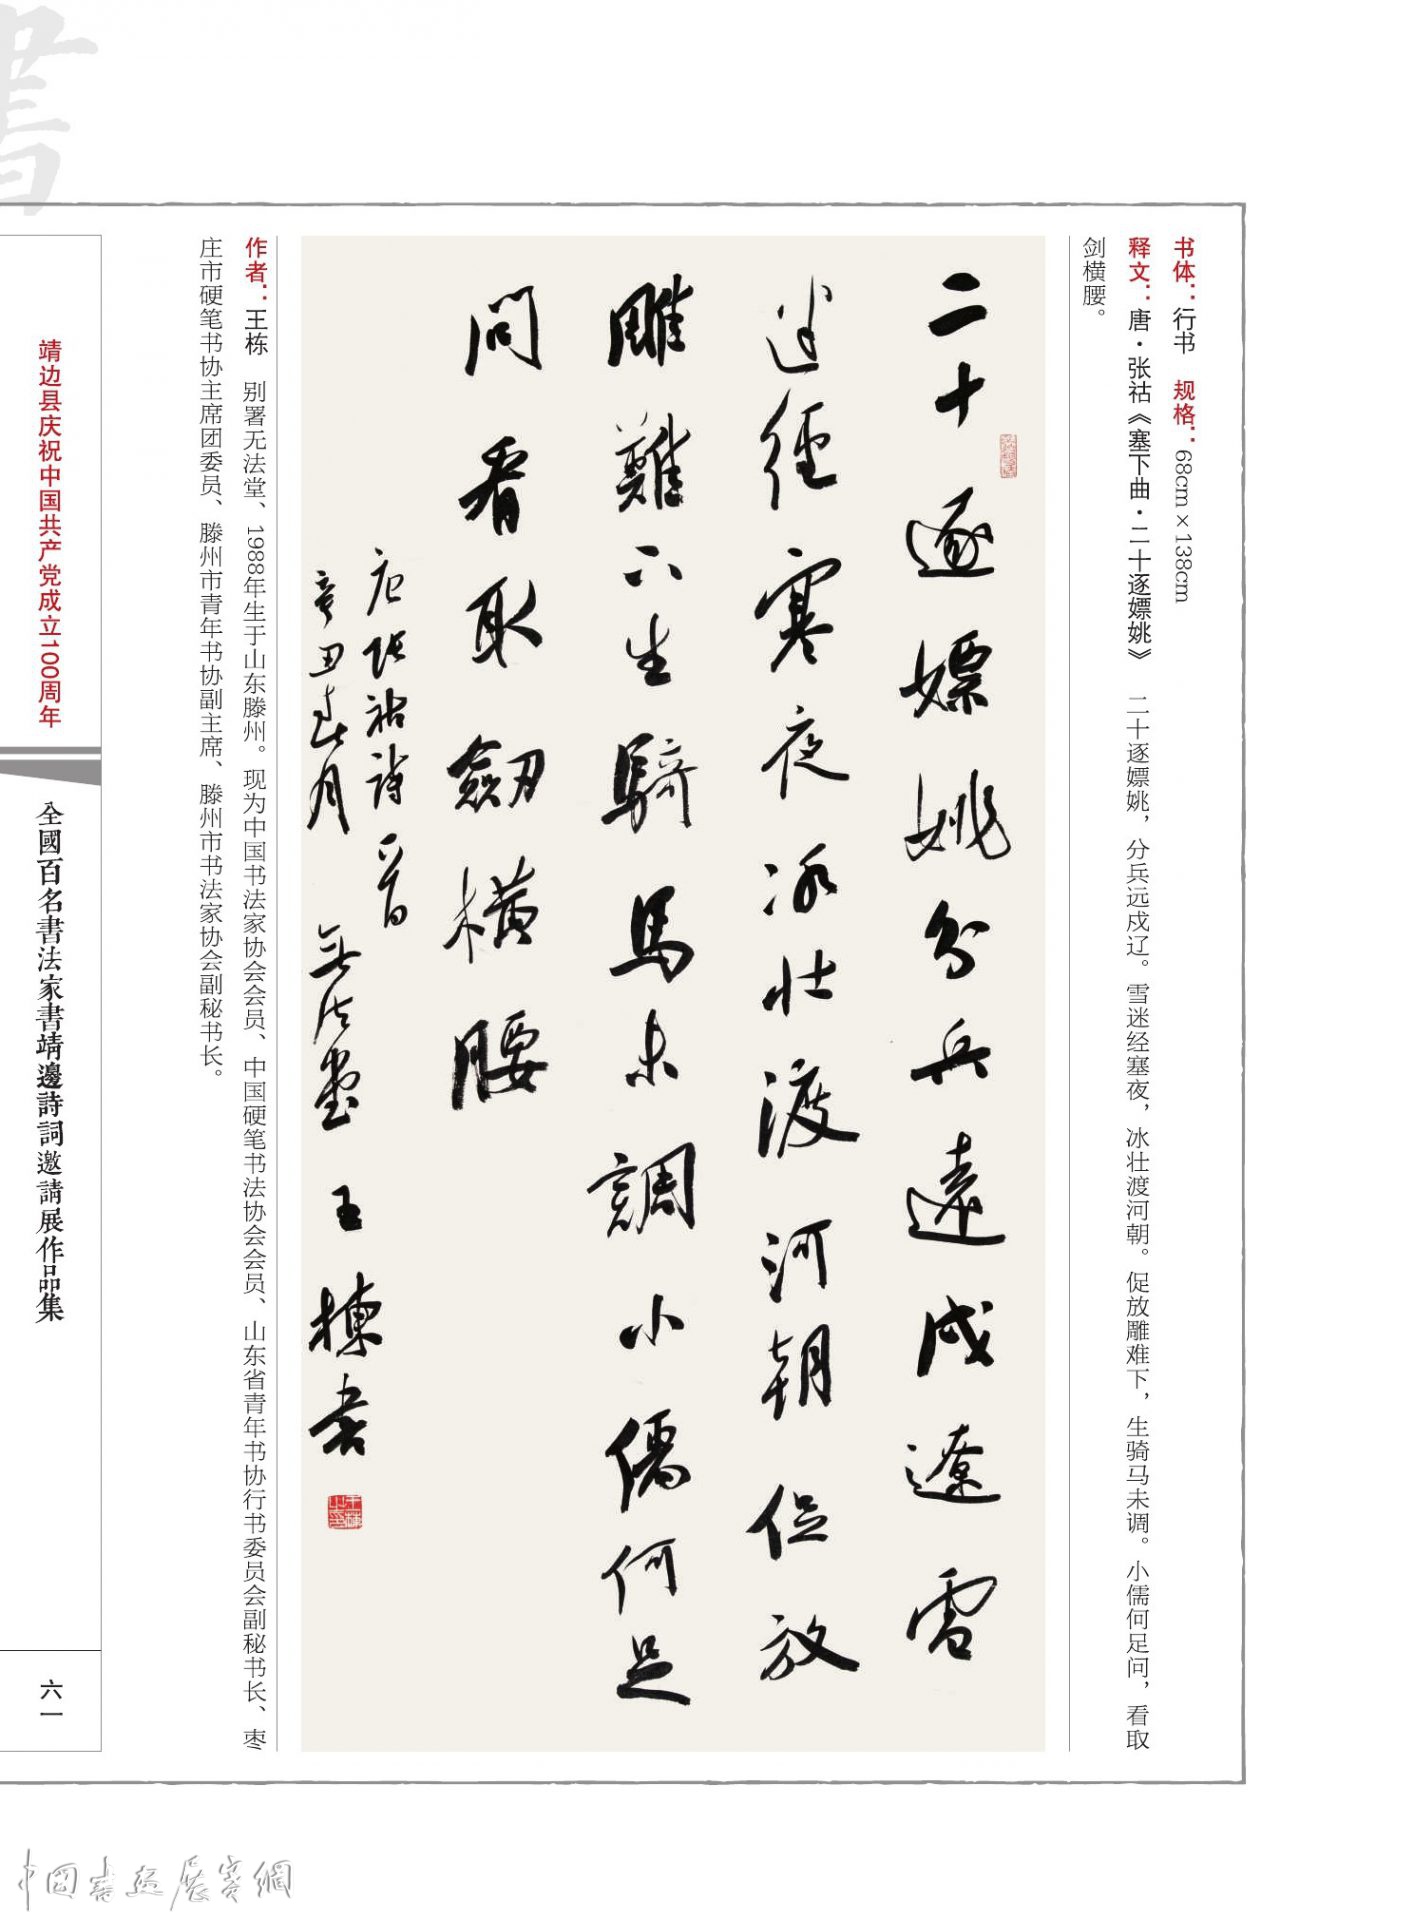 書
书体：行书　规格：68cm×138cm
释文：唐·张祜《塞下曲·二十逐嫖姚》　二十逐嫖姚，分兵远戍辽。雪迷经塞夜，冰壮渡河朝。促放雕难下，生骑马未调。小儒何足问，看取
剑横腰。
二十逐嫖姚分兵遠戍遼雪
迷經寒夜冰壮渡河朝促放
雕難下生騎馬未調小儒何足
問看取劒橫腰
唐張祜詩一首
辛丑春月 無法堂 王棟書
作者：王栋　别署无法堂、1988年生于山东滕州。现为中国书法家协会会员、中国硬笔书法协会会员、山东省青年书协行书委员会副秘书长、枣
庄市硬笔书协主席团委员、滕州市青年书协副主席、滕州市书法家协会副秘书长。
靖边县庆祝中国共产党成立100周年
全國百名書法家書靖邊詩詞邀請展作品集
六一
中國書畫展賽網